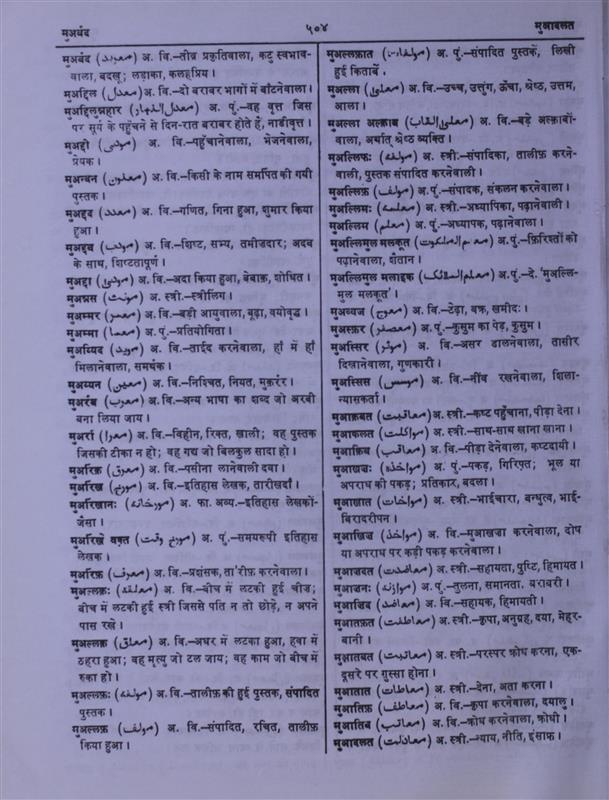 मुअर्बद
५०४
मुआबलत
मुअर्बद (معربد) अ. वि.–तीव्र प्रकृतिवाला, कटु स्वभाव-
वाला, बदखू; लड़ाका, कलहप्रिय।
मुअद्दिल (معدل) अ. वि.–दो बराबर भागों में बाँटनेवाला।
मुअद्दिलुन्नहार (معدل النہار) अ. पुं.–वह वृत्त जिस
पर सूर्य के पहुँचने से दिन-रात बराबर होते हैं, नाड़ीवृत्त।
मुअद्दी (مؤدی) अ. वि.–पहुँचानेवाला, भेजनेवाला,
प्रेषक।
मुअन्वन (معنون) अ. वि.–किसी के नाम समर्पित की गयी
पुस्तक।
मुअद्दद (معدد) अ. वि.–गणित, गिना हुआ, शुमार किया
हुआ।
मुअद्दब (مؤدب) अ. वि.–शिष्ट, सभ्य, तमीज़दार; अदब
के साथ, शिष्टतापूर्ण।
मुअद्दा (مؤدی) अ. वि.–अदा किया हुआ, बेबाक़, शोधित।
मुअन्नस (مونث) अ. स्त्री.–स्त्रीलिंग।
मुअम्मर (معمر) अ. वि.–बड़ी आयुवाला, बूढ़ा, वयोवृद्ध।
मुअम्मा (معما) अ. पुं.–प्रतियोगिता।
मुअय्यिद (موید) अ. वि.–ताईद करनेवाला, हाँ में हाँ
मिलानेवाला, समर्थक।
मुअय्यन (معین) अ. वि.–निश्चित, नियत, मुक़र्रर।
मुअर्रब (معرب) अ. वि.–अन्य भाषा का शब्द जो अरबी
बना लिया जाय।
मुअर्रा (معرا) अ. वि.–विहीन, रिक्त, ख़ाली; वह पुस्तक
जिसकी टीका न हो; वह गद्य जो बिलकुल सादा हो।
मुअर्रिक़ (معرق) अ. वि.–पसीना लानेवाली दवा।
मुअर्रिख़ (مورخ) अ. वि.–इतिहास लेखक, तारीख़दाँ।
मुअर्रिख़ानः (مورخانہ) अ. फा. अव्य.–इतिहास लेखकों-
जैसा।
मुअर्रिख़े वक़्त (مورخ وقت) अ. पुं.–समयरूपी इतिहास
लेखक।
मुअर्रिफ़ (معرف) अ. वि.–प्रशंसक, ता'रीफ़ करनेवाला।
मुअल्लक़ः (معلقہ) अ. वि.–बीच में लटकी हुई चीज़;
बीच में लटकी हुई स्त्री जिससे पति न तो छोड़े, न अपने
पास रखे।
मुअल्लक़ (معلق) अ. वि.–अधर में लटका हुआ, हवा में
ठहरा हुआ; वह मृत्यु जो टल जाय; वह काम जो बीच में
रुका हो।
मुअल्लफ़ः (مولفہ) अ. वि.–तालीफ़ की हुई पुस्तक, संपादित
पुस्तक।
मुअल्लफ़ (مولف) अ. वि.–संपादित, रचित, तालीफ़
किया हुआ।
मुअल्लफ़ात (مولفات) अ. पुं.–संपादित पुस्तकें, लिखी
हुई किताबें।
मुअल्ला (معلی) अ. वि.–उच्च, उत्तुंग, ऊँचा, श्रेष्ठ, उत्तम,
आला।
मुअल्ला अल्क़ाब (معلی القاب) अ. वि.–बड़े अल्क़ाबों-
वाला, अर्थात् श्रेष्ठ व्यक्ति।
मुअल्लिफ़ः (مولفہ) अ. स्त्री.–संपादिका, तालीफ़ करने-
वाली, पुस्तक संपादित करनेवाली।
मुअल्लिफ़ (مولف) अ. पुं.–संपादक, संकलन करनेवाला।
मुअल्लिमः (معلمہ) अ. स्त्री.–अध्यापिका, पढ़ानेवाली।
मुअल्लिम (معلم) अ. पुं.–अध्यापक, पढ़ानेवाला।
मुअल्लिमुल मलकूत (معلم الملکوت) अ. पुं.–फ़िरिश्तों को
पढ़ानेवाला, शैतान।
मुअल्लिमुल मलाइक (معلم الملائک) अ. पुं.–दे. 'मुअल्लि-
मुल मलकूत'।
मुअव्वज (معوج) अ. वि.–टेढ़ा, वक्र, ख़मीदः।
मुअस्फ़र (معصفر) अ. पुं.–कुसुम का पेड़, कुसुम।
मुअस्सिर (موثر) अ. वि.–असर डालनेवाला, तासीर
दिखानेवाला, गुणकारी।
मुअस्सिस (موسس) अ. वि.–नींव रखनेवाला, शिला-
न्यासकर्ता।
मुआक़बत (معاقبت) अ. स्त्री.–कष्ट पहुँचाना, पीड़ा देना।
मुआकलत (مواکلت) अ. स्त्री.–साथ-साथ खाना खाना।
मुआक़िब (معاقب) अ. वि.–पीड़ा देनेवाला, कष्टदायी।
मुआख़ज़ः (مواخذہ) अ. पुं.–पकड़, गिरिफ़्त; भूल या
अपराध की पकड़; प्रतिकार, बदला।
मुआख़ात (مواخات) अ. स्त्री.–भाईचारा, बन्धुत्व, भाई-
बिरादरीपन।
मुआख़िज़ (مواخذ) अ. वि.–मुआखज़ा करनेवाला, दोष
या अपराध पर कड़ी पकड़ करनेवाला।
मुआज़दत (معاضدت) अ. स्त्री.–सहायता, पुष्टि, हिमायत।
मुआज़नः (موازنہ) अ. पुं.–तुलना, समानता, बराबरी।
मुआज़िद (معاضد) अ. वि.–सहायक, हिमायती।
मुआतफ़त (معاطفت) अ. स्त्री.–कृपा, अनुग्रह, दया, मेहर-
बानी।
मुआतबत (معاتبت) अ. स्त्री.–परस्पर क्रोध करना, एक-
दूसरे पर गुस्सा होना।
मुआतात (معاطات) अ. स्त्री.–देना, अता करना।
मुआतिफ़ (معاطف) अ. वि.–कृपा करनेवाला, दयालु।
मुआतिब (معاتب) अ. वि.–क्रोध करनेवाला, क्रोधी।
मुआदलत (معادلت) अ. स्त्री.–न्याय, नीति, इंसाफ़।